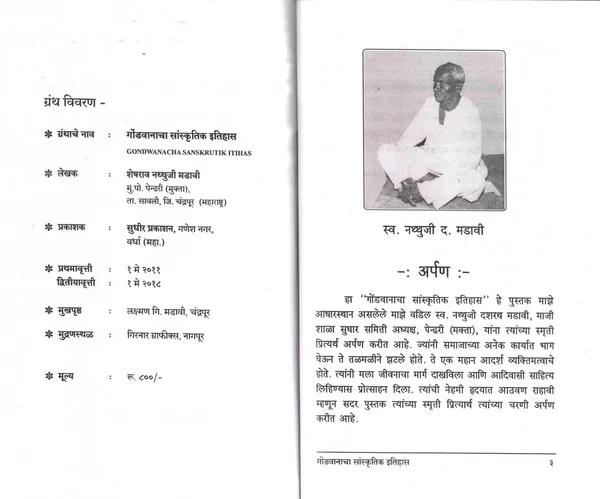 ग्रंथ विवरण -
✻ ग्रंथाचे नाव : गोंडवानाचा सांस्कृतिक इतिहास
GONDWANACHA SANSKRUTIK ITIHAS
✻ लेखक : शेषराव नथ्थुजी मडावी
मु.पो. पेन्डरी (मुक्ता),
ता. सावली, जि. चंद्रपूर (महाराष्ट्र)
✻ प्रकाशक : सुधीर प्रकाशन, गणेश नगर,
वर्धा (महा.)
✻ प्रथमावृत्ती : १ मे २०११
द्वितीयावृत्ती : १ मे २०१८
✻ मुखपृष्ठ : लक्ष्मण गि. मडावी, चंद्रपूर
✻ मुद्रणस्थळ : गिरनार ग्राफीक्स, नागपूर
✻ मूल्य : रू. ८००/-
स्व. नथ्थुजी द. मडावी
-: अर्पण :-
हा "गोंडवानाचा सांस्कृतिक इतिहास" हे पुस्तक माझे
आधारस्थान असलेले माझे वडिल स्व. नथ्थुजी दशरथ मडावी, माजी
शाळा सुधार समिती अध्यक्ष, पेन्ढरी (मक्ता), यांना त्यांच्या स्मृती
प्रित्यर्थ अर्पण करीत आहे. ज्यांनी समाजाच्या अनेक कार्यात भाग
घेऊन ते तळमळीने झटले होते. ते एक महान आदर्श व्यक्तिमत्वाचे
होते. त्यांनी मला जीवनाचा मार्ग दाखविला आणि आदिवासी साहित्य
लिहिण्यास प्रोत्साहन दिला. त्यांची नेहमी हृदयात आठवण राहावी
म्हणून सदर पुस्तक त्यांच्या स्मृती प्रित्यार्थ त्यांच्या चरणी अर्पण
करीत आहे.
गोंडवानाचा सांस्कृतिक इतिहास ३